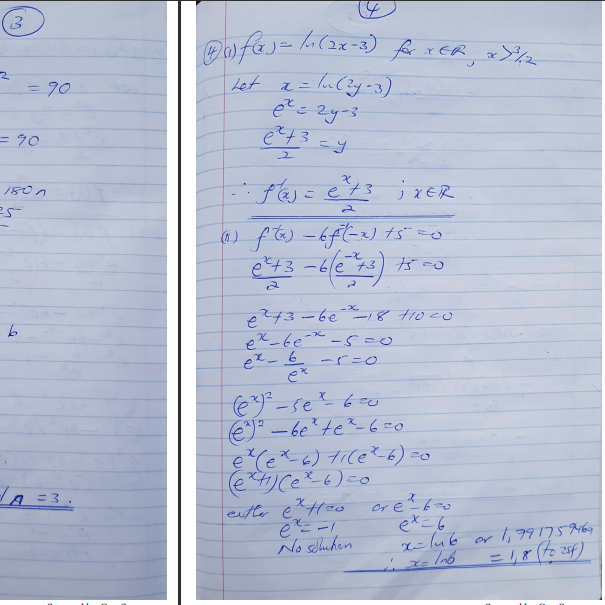 3
2 = 90
= 90
180n
A = 3.
4
4 (i) f(x) = ln(2x-3) for x∈ℝ, x>3/2
Let x = ln(2y-3)
eˣ = 2y-3
(eˣ+3)/2 = y
∴ f⁻¹(x) = (eˣ+3)/2 ; x∈ℝ
(ii) f⁻¹(x) - 6f⁻¹(-x) + 5 = 0
(eˣ+3)/2 - 6((e⁻ˣ+3)/2) + 5 = 0
eˣ+3 - 6e⁻ˣ - 18 + 10 = 0
eˣ - 6e⁻ˣ - 5 = 0
eˣ - 6/eˣ - 5 = 0
(eˣ)² - 5eˣ - 6 = 0
(eˣ)² - 6eˣ + eˣ - 6 = 0
eˣ(eˣ-6) + 1(eˣ-6) = 0
(eˣ+1)(eˣ-6) = 0
either eˣ+1=0 or eˣ-6=0
eˣ = -1 eˣ = 6
No solution x = ln6 or 1,791759469
∴ x = ln6 = 1,8 (to 2sf)